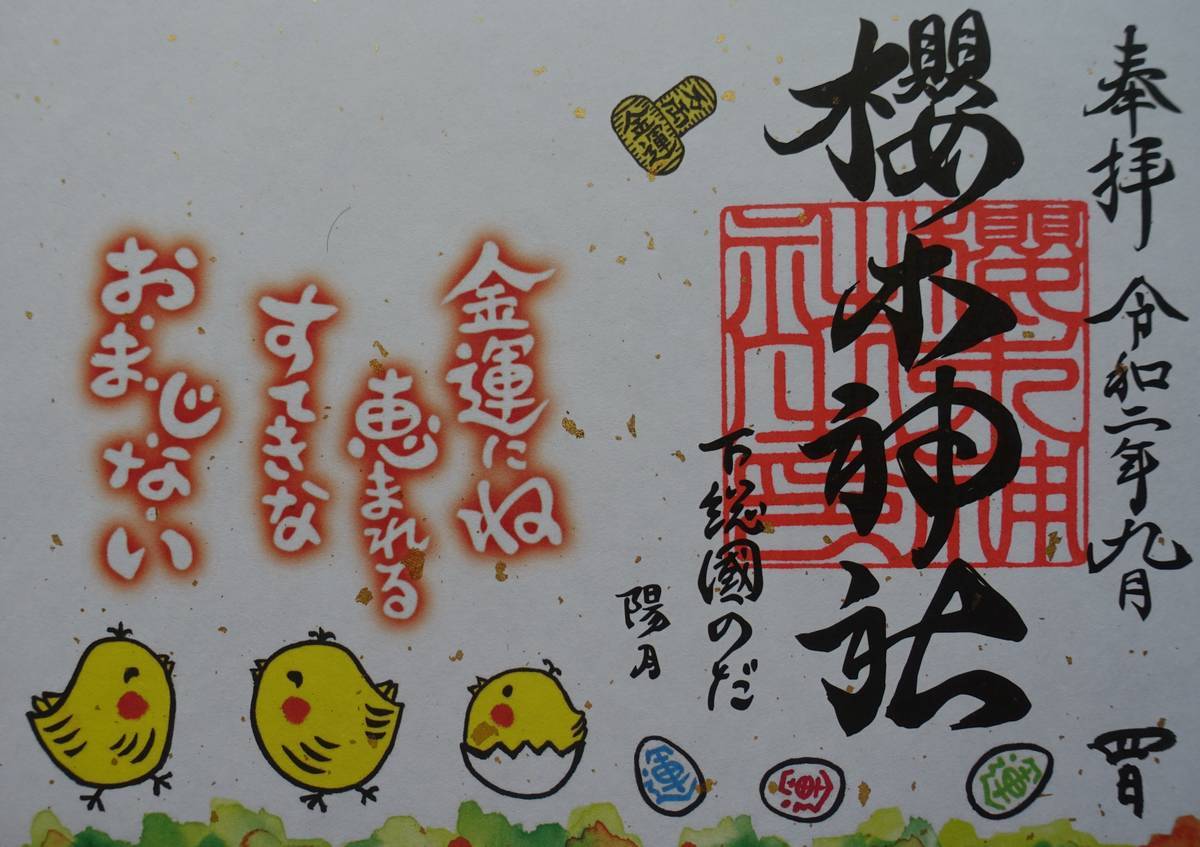 奉拝 令和二年九月 四日
櫻木神社
下総國のだ
陽月
金運
金運にね
恵まれる
すてきな
おまじない
運
運
運